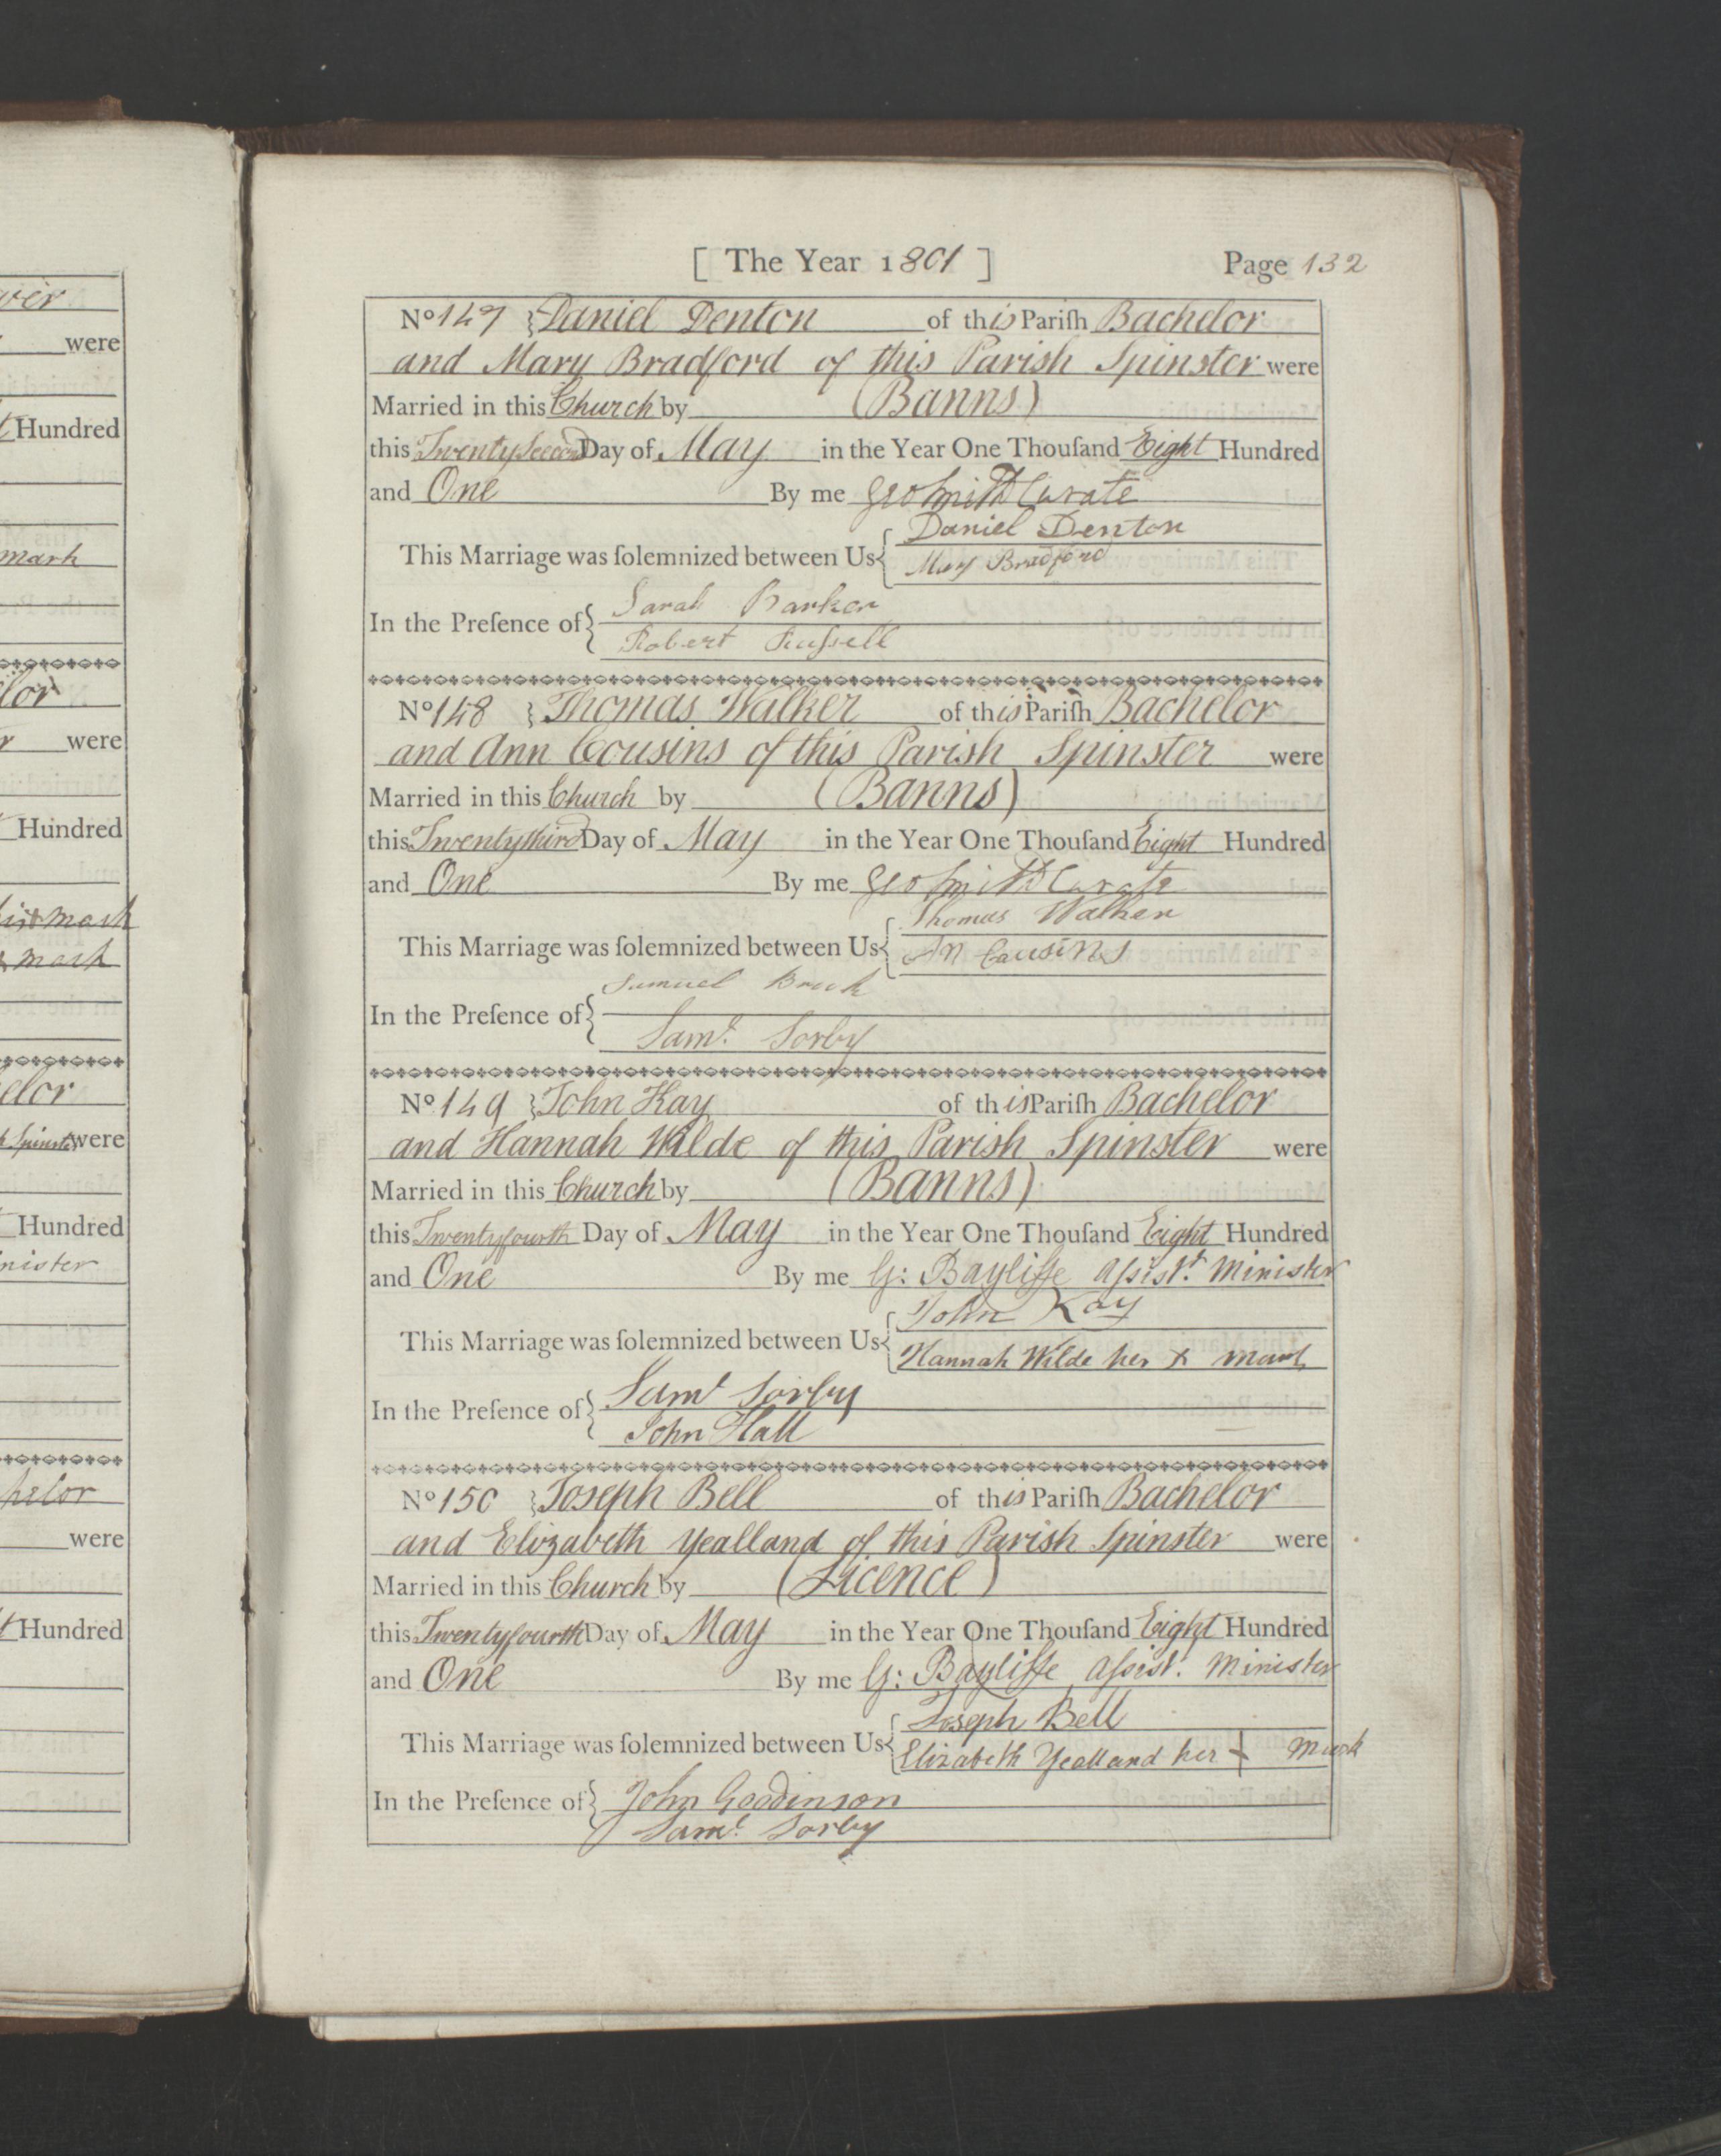 [ The Year 1801 ] Page 132
No 147 Daniel Denton of this Pariſh Bachelor
and Mary Bradford of this Parish Spinster were
Married in this Church by (Banns)
this Twenty Second Day of May in the Year One Thouſand Eight Hundred
and One By me Geo Smith Curate
This Marriage was ſolemnized between Us Daniel Denton
Mary Bradford
In the Preſence of Sarah Barker
Robert Ruſsell
No 148 Thomas Walker of this Pariſh Bachelor
and Ann Cousins of this Parish Spinster were
Married in this Church by (Banns)
this Twentythird Day of May in the Year One Thouſand Eight Hundred
and One By me Geo Smith Curate
This Marriage was ſolemnized between Us Thomas Walker
An Cousins
In the Preſence of Samuel
Saml. Sorby
No 149 John Kay of this Pariſh Bachelor
and Hannah Wilde of this Parish Spinster were
Married in this Church by (Banns)
this Twentyfourth Day of May in the Year One Thouſand Eight Hundred
and One By me G: Bayliffe Aſsist. Minister
This Marriage was ſolemnized between Us John Kay
Hannah Wilde her x mark
In the Preſence of Saml Sorby
John Hall
No 150 Joseph Bell of this Pariſh Bachelor
and Elizabeth Yealland of this Parish Spinster were
Married in this Church by (Licence)
this Twentyfourth Day of May in the Year One Thouſand Eight Hundred
and One By me G: Bayliffe Aſsist. Minister
This Marriage was ſolemnized between Us Joseph Bell
Elizabeth Yealland her + mark
In the Preſence of John Goodinson
Saml. Sorby
were
Hundred
mark
were
Hundred
mark
mark
were
Hundred
were
Hundred